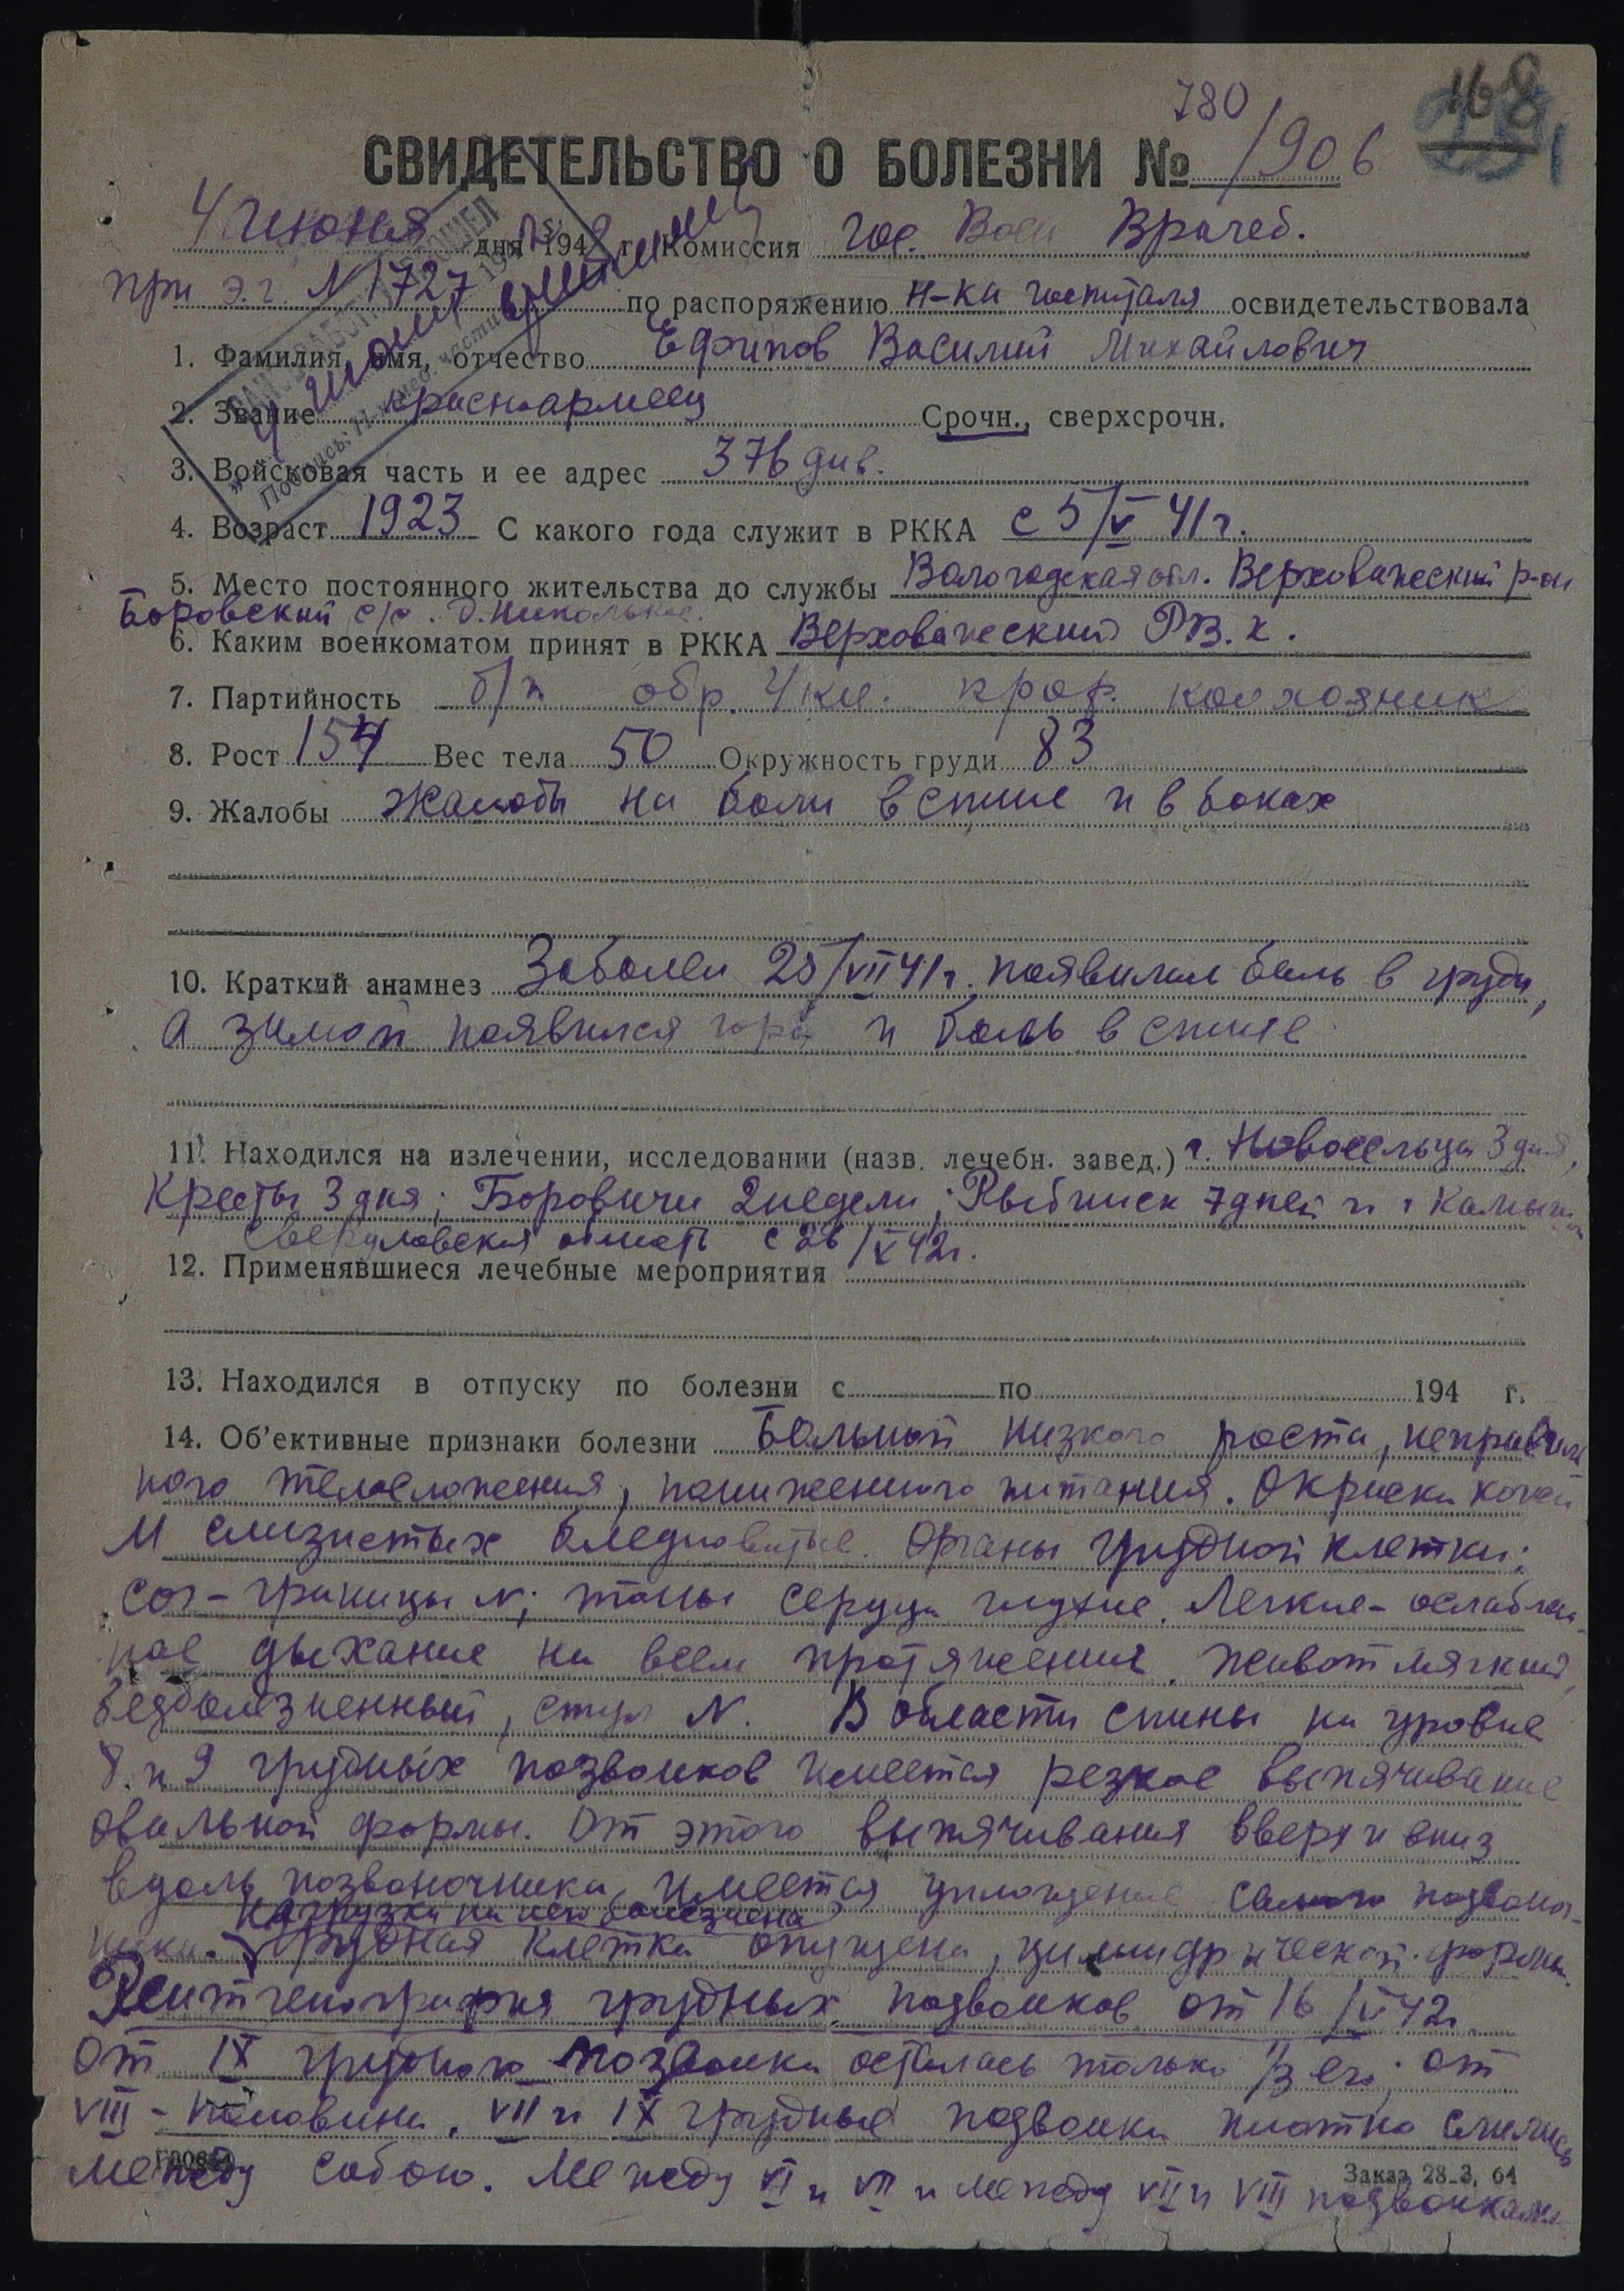 780
168
СВИДЕТЕЛЬСТВО О БОЛЕЗНИ № /906
4 июня дня 1942 г. Комиссия гос. Воен Врачеб.
при э.г. N 1727 по распоряжению н-ка госпиталя освидетельствовала
1. Фамилия, имя, отчество Ефипов Василий Михайлович
2. Звание красноармеец Срочн., сверхсрочн.
3. Войсковая часть и ее адрес 376 див.
4. Возраст 1923 С какого года служит в РККА с 5/V 41 г.
5. Место постоянного жительства до службы Вологодская обл. Верховажеский р-он
Боровский с/с. д. Никольное.
6. Каким военкоматом принят в РККА Верховажеский РВ.к.
7. Партийность б/п обр. 4 кл. проф. колхозник
8. Рост 154 Вес тела 50 Окружность груди 83
9. Жалобы Жалобы на боли в спине и в боках
10. Краткий анамнез Заболел 25/VII 41 г. появилась боль в груди,
а зимой появился горб и боль в спине
11. Находился на излечении, исследовании (назв. лечебн. завед.) г. Новосельцы 3 дня,
Кресты 3 дня; Боровичи 2 недели; Рыбинск 7 дней и г Камыш
Свердловская область с 26/V 42 г.
12. Применявшиеся лечебные мероприятия
13. Находился в отпуску по болезни с по 194 г.
14. Об'ективные признаки болезни Больной низкого роста, неправиль
ного телосложения, пониженного питания. Окраска кожи
и слизистых бледноватые. Органы грудной клетки:
сог - границы N; тоны сердца глухие. Легкие - ослаблен-
ное дыхание на всем протяжении. Живот мягкий,
безболезненный, стул N. В области спины на уровне
8 и 9 грудных позвонков имеется резкое выпячивание
овальной формы. От этого выпячивания вверх и вниз
вдоль позвоночника имеется уплощение самого позвоноч-
нагрузка на него болезнена
ника. Грудная клетка опущена, цилиндрической формы.
Рентгенография грудных позвонков от 16/V 42 г
От IX грудного позвонка осталась только 1/3 его; от
VIII - половина. VII и IX грудные позвонки плотно слились
между собою. Между VI и VII и между VII и VIII позвонками
Заказ 28-3, 64